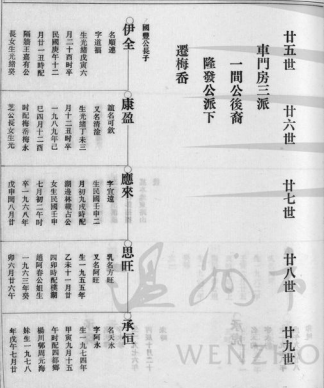 廿五世
廿六世
廿七世
廿八世
廿九世
車門房三派
一間公後裔
隆發公派下
遷梅岙
國豐公長子
伊全
名順連
字道福
生光緒戊寅六
月二十酉時卒
民國庚午十二
月廿一丑時配
隔牆王嘉有公
長女生光緒癸
康盈
譜名可欽
又名清
生光緒丁未三
月十二丑時卒
一九八九年己
巳四月十二酉
時配梅岙梅永
芝公長女生光
應來
字宜達
生民國壬申二
月初九戌時配
邊林龍占公
女生民國壬申
七月初二午時
卒一九六八年
戊申閏八月廿
思旺
乳名方旺
又名阿旺
生一九五五年
乙未十一月廿
四卯時配橫
趙阿春公生
一九六三年癸
卯六月廿六午
承恒
名天水
字阿永
生一九七四年
甲寅九月廿五
午時配四都鄉
川周元海
妹生一九七八
年戊午七月廿
WENZHO